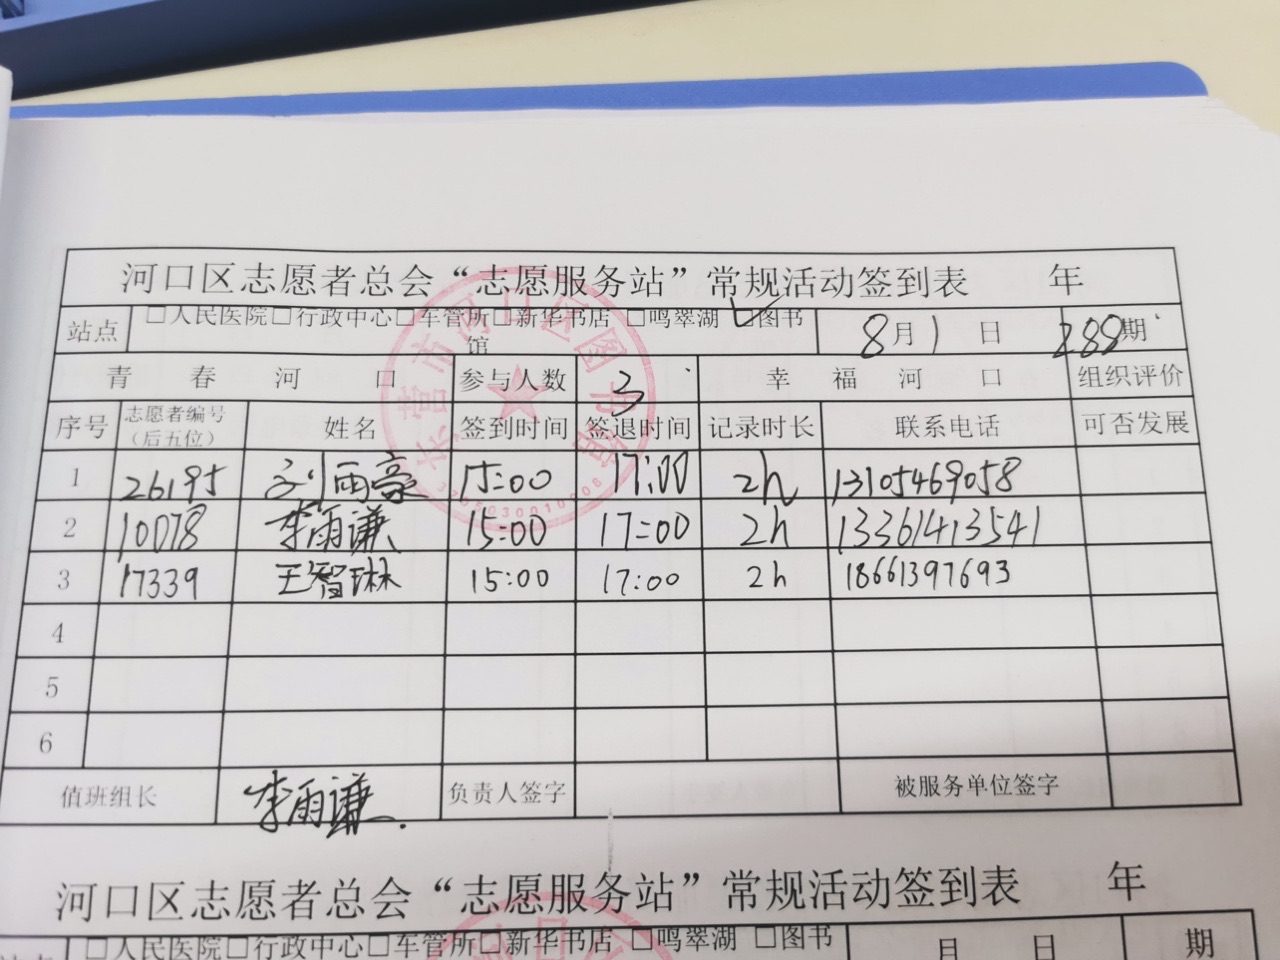 河口区志愿者总会“志愿服务站”常规活动签到表 年
站点 □人民医院□行政中心□车管所□新华书店 □鸣翠湖 □图书馆 8月1日 288期
青春河口 参与人数 3 幸福河口 组织评价
序号 志愿者编号（后五位） 姓名 签到时间 签退时间 记录时长 联系电话 可否发展
1 26195 刘雨豪 15:00 17:00 2h 13105469058
2 10078 李雨谦 15:00 17:00 2h 13361413541
3 17339 王智琳 15:00 17:00 2h 18661397693
4
5
6
值班组长 李雨谦 负责人签字 被服务单位签字
东营市河口区图书馆
河口区志愿者总会“志愿服务站”常规活动签到表 年
□人民医院□行政中心□车管所□新华书店 □鸣翠湖 □图书 月 日 期